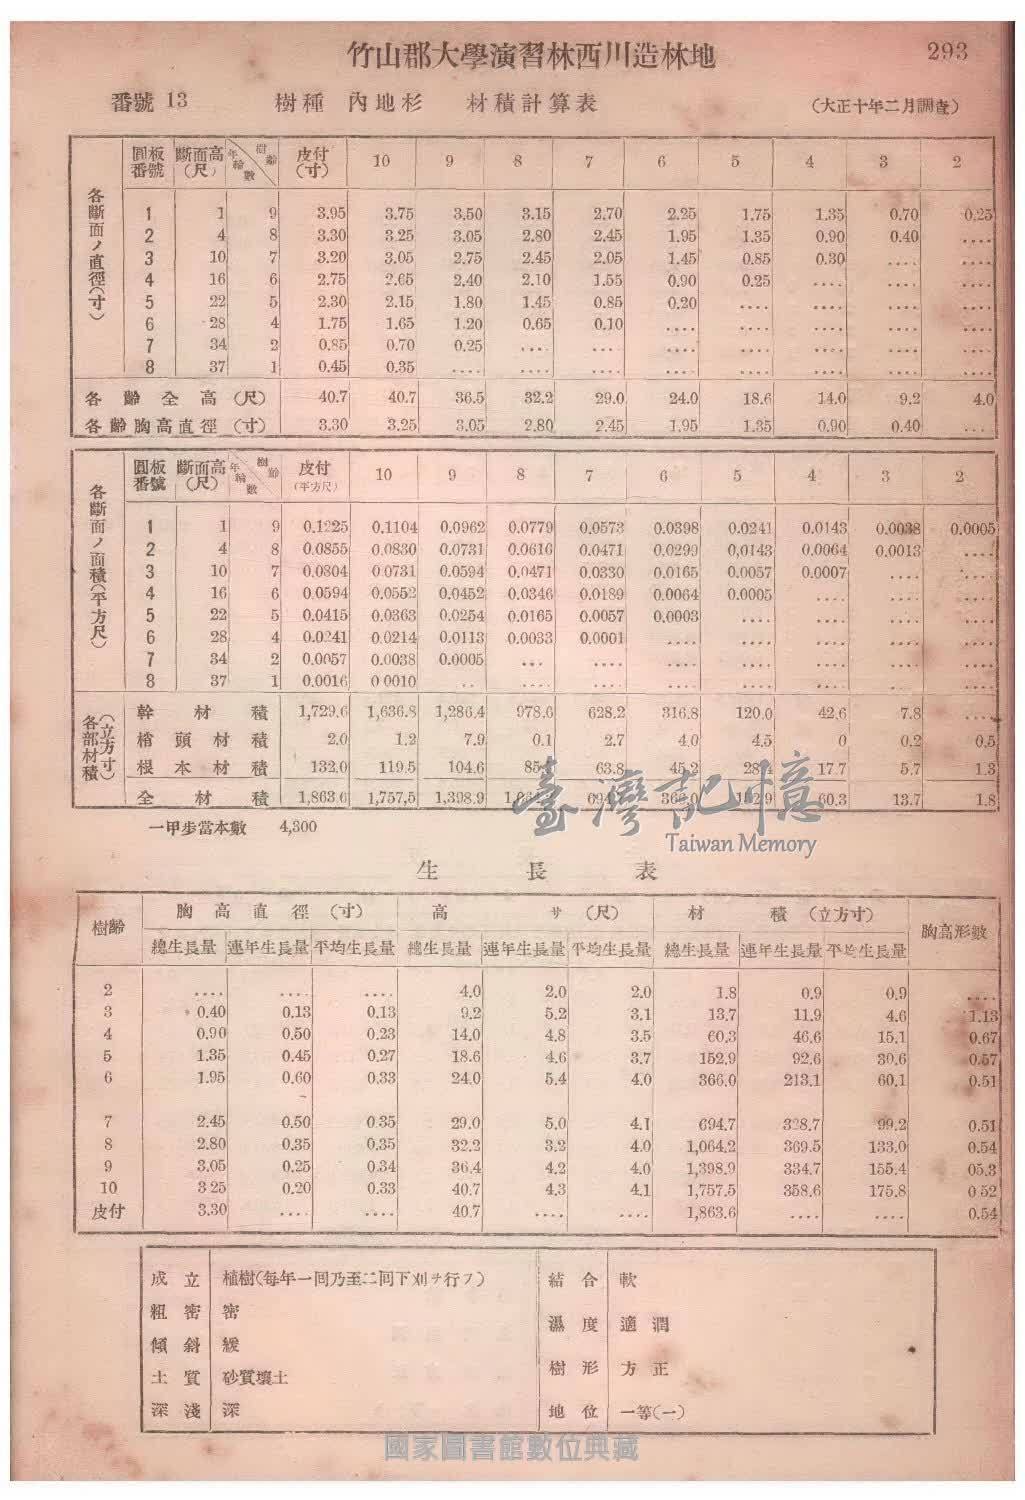 竹山郡大學演習林西川造林地
293
番號 13 樹種 內地杉 材積計算表 (大正十年二月調査)
各斷面ノ直徑(寸)
圓板番號 斷面高(尺) 樹齡 年輪數 皮付(寸) 10 9 8 7 6 5 4 3 2
1 1 9 3.95 3.75 3.50 3.15 2.70 2.25 1.75 1.35 0.70 0.25
2 4 8 3.30 3.25 3.05 2.80 2.45 1.95 1.35 0.90 0.40 ....
3 10 7 3.20 3.05 2.75 2.45 2.05 1.45 0.85 0.30 .... ....
4 16 6 2.75 2.65 2.40 2.10 1.55 0.90 0.25 .... .... ....
5 22 5 2.30 2.15 1.80 1.45 0.85 0.20 .... .... .... ....
6 28 4 1.75 1.65 1.20 0.65 0.10 .... .... .... .... ....
7 34 2 0.85 0.70 0.25 .... .... .... .... .... .... ....
8 37 1 0.45 0.35 .... .... .... .... .... .... .... ....
各齡全高(尺) 40.7 40.7 36.5 32.2 29.0 24.0 18.6 14.0 9.2 4.0
各齡胸高直徑(寸) 3.30 3.25 3.05 2.80 2.45 1.95 1.35 0.90 0.40 ...
各斷面ノ面積(平方尺)
圓板番號 斷面高(尺) 樹齡 年輪數 皮付(平方尺) 10 9 8 7 6 5 4 3 2
1 1 9 0.1225 0.1104 0.0962 0.0779 0.0573 0.0398 0.0241 0.0143 0.0038 0.0005
2 4 8 0.0855 0.0830 0.0731 0.0616 0.0471 0.0299 0,0143 0.0064 0.0013 ....
3 10 7 0.0804 0 0731 0.0594 0.0471 0.0330 0.0165 0.0057 0.0007 .... ....
4 16 6 0.0594 0.0552 0.0452 0.0346 0.0189 0.0064 0.0005 .... .... ....
5 22 5 0.0415 0.0363 0.0254 0.0165 0.0057 0.0003 .... .... .... ....
6 28 4 0.0241 0.0214 0.0113 0.0033 0.0001 .... .... .... .... ....
7 34 2 0.0057 0.0038 0.0005 ... .... .... .... .... .... ....
8 37 1 0.0016 0 0010 .. .... .... .... .... ... .... ....
各部材積(立方寸)
幹材積 1,729.6 1,636.8 1,286.4 978.6 628.2 316.8 120.0 42.6 7.8 ....
梢頭材積 2.0 1.2 7.9 0.1 2.7 4.0 4.5 0 0.2 0.5
根本材積 132.0 119.5 104.6 63.8 45.2 17.7 5.7 1.3
全材積 1,863.6 1,757,5 1,398.9 366.0 152.9 60.3 13.7 1.8
臺灣記憶
Taiwan Memory
一甲步當本數 4,300
生長表
樹齡 胸高直徑(寸) 高サ(尺) 材積(立方寸) 胸高形數
總生長量 連年生長量 平均生長量 總生長量 連年生長量 平均生長量 總生長量 連年生長量 平均生長量
2 .... .... .... 4.0 2.0 2.0 1.8 0.9 0.9 ....
3 0.40 0.13 0.13 9.2 5.2 3.1 13.7 11.9 4.6 1.13
4 0.90 0.50 0.23 14.0 4.8 3.5 60.3 46.6 15.1 0.67
5 1.35 0.45 0.27 18.6 4.6 3.7 152.9 92.6 30.6 0.57
6 1.95 0.60 0.33 24.0 5.4 4.0 366.0 213.1 60.1 0.51
7 2.45 0.50 0 35 29.0 5.0 4.1 694.7 328.7 99.2 0.51
8 2.80 0.35 0.35 32.2 3.2 4.0 1,064.2 369.5 133.0 0.54
9 3.05 0.25 0.34 36.4 4.2 4.0 1,398.9 334.7 155.4 05.3
10 3 25 0.20 0.33 40.7 4.3 4.1 1,757.5 358.6 175.8 0 52
皮付 3.30 .... .... 40.7 .... .... 1,863.6 .... .... 0.54
成立 植樹(每年一囘乃至二囘下刈ヲ行フ)
粗密 密
傾斜 緩
土質 砂質壤土
深淺 深
結合 軟
濕度 適潤
樹形 方正
地位 一等(一)
國家圖書館數位典藏